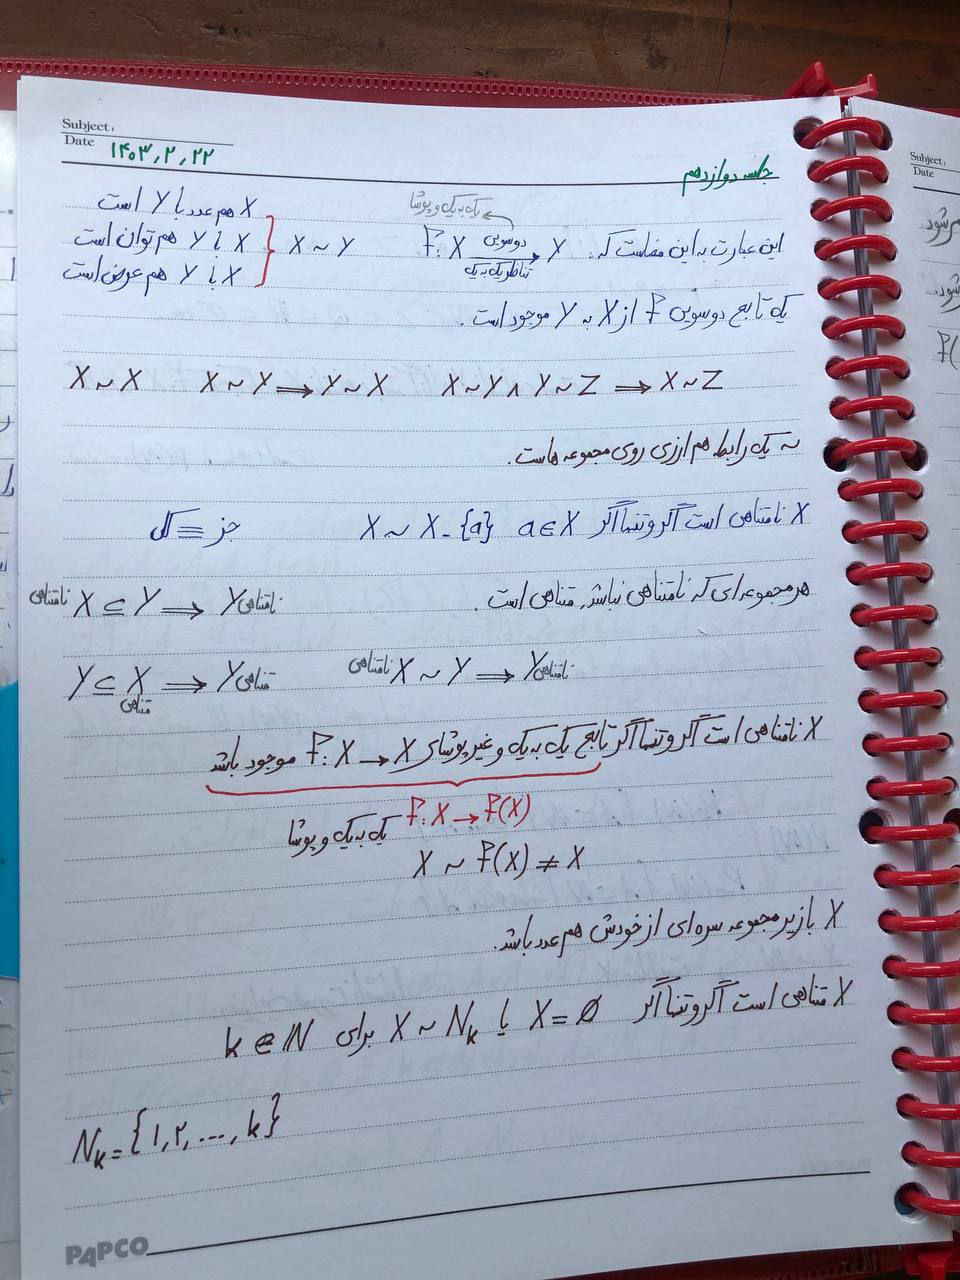 Subject:
Date ۱۴۰۳,۲,۲۲
جلسه دوازدهم
X هم عدد با Y است
X با Y هم توان است
X با Y هم عرض است
X ~ Y
یک به یک و پوشا
این عبارت به این معناست که: f: X → Y دوسویی تناظر یک به یک
یک تابع دوسویی f از X به Y موجود است.
X ~ X X ~ Y ⇒ Y ~ X X ~ Y ∧ Y ~ Z ⇒ X ~ Z
~ یک رابطه هم ارزی روی مجموعه هاست.
X نامتناهی است اگر و تنها اگر X ~ X - {a} a ∈ X جز ≡ کل
هر مجموعه ای که نامتناهی نباشد, متناهی است.
نامتناهی X ⊆ Y ⇒ Y نامتناهی
Y ⊆ X متناهی ⇒ Y متناهی نامتناهی X ~ Y ⇒ Y نامتناهی
X نامتناهی است اگر و تنها اگر تابع یک به یک و غیر پوشای f: X → X موجود باشد
f: X → f(X) یک به یک و پوشا
X ~ f(X) ≠ X
X با زیر مجموعه سره ای از خودش هم عدد باشد.
X متناهی است اگر و تنها اگر X = ∅ یا X ~ Nₖ برای k ∈ N
Nₖ = {۱,۲,...,k}
PAPCO
Subject:
Date